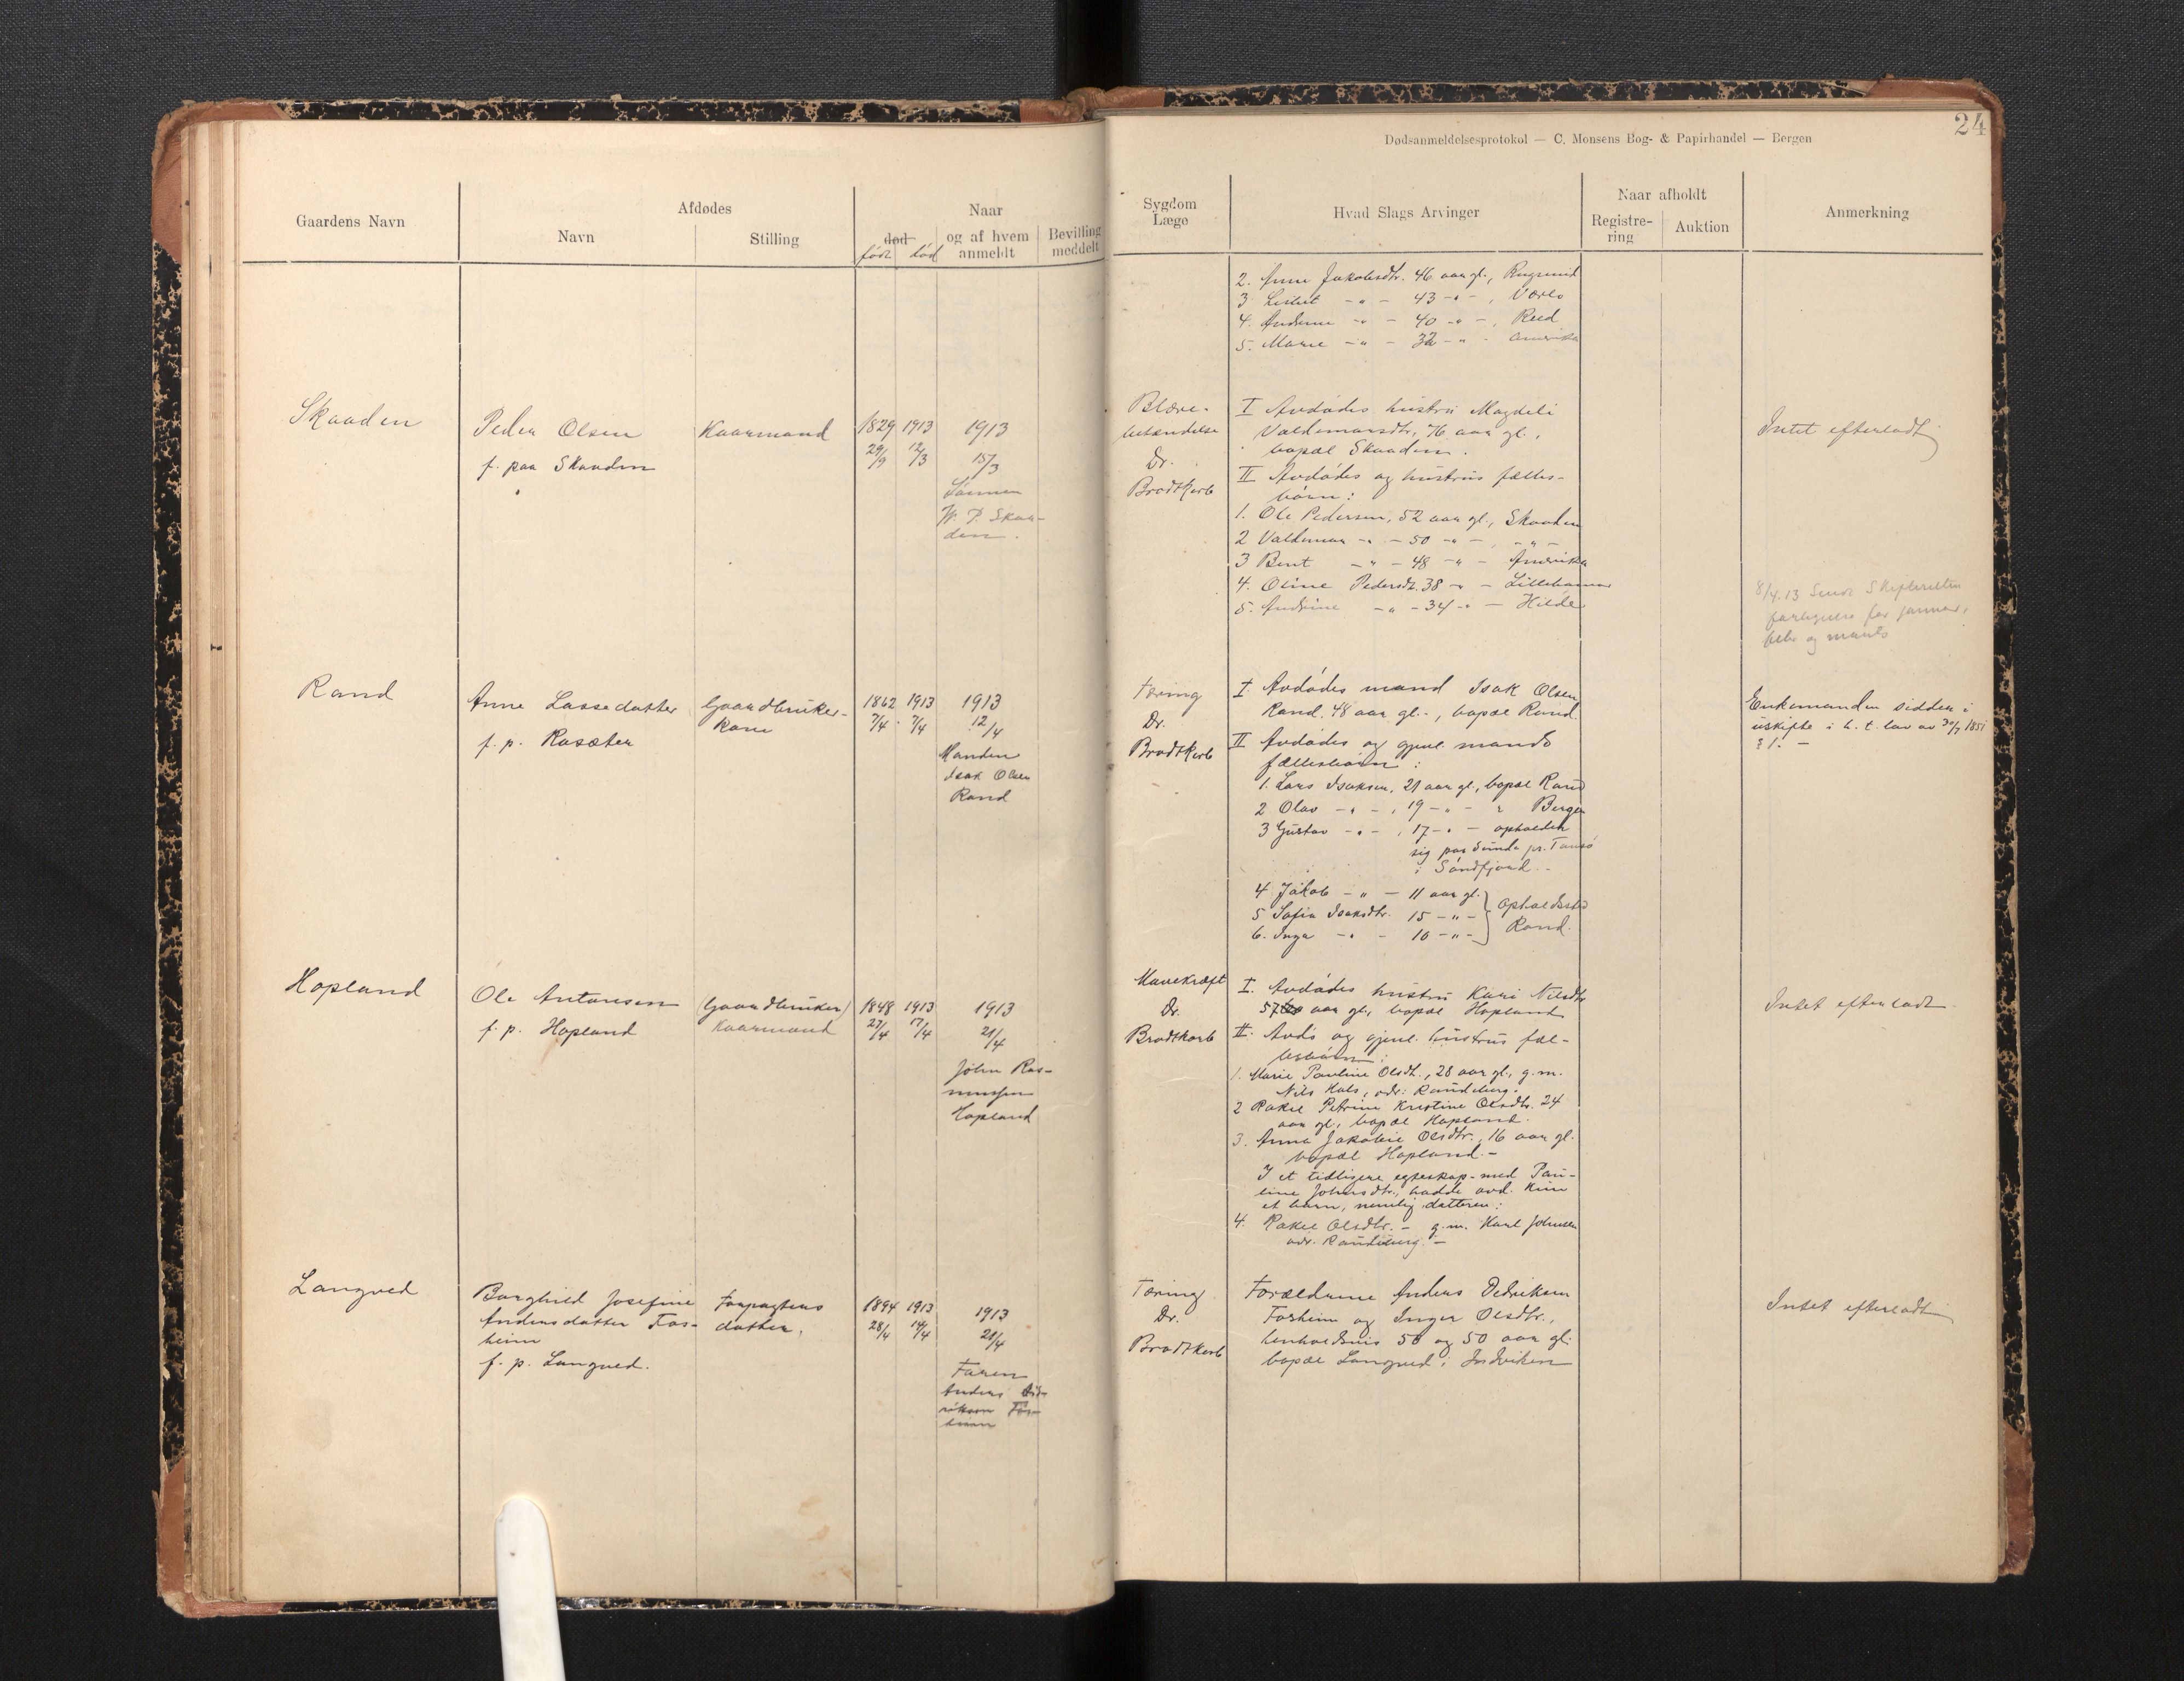 24
Dødsanmeldelsesprotokol — C. Monsens Bog- & Papirhandel — Bergen
Gaardens Navn
Afdødes
Navn
Stilling
Naar
død
født død
og af hvem
anmeldt
Bevilling
meddelt
Sygdom
Læge
Hvad Slags Arvinger
Naar afholdt
Registre-
ring
Auktion
Anmerkning
2. Anne Jakobsdtr. 46 aar gl., Rugsund
3 Lisbet -"- - 43 -"-,
4. Andrine -"- - 40 -"-, Reed
5. Marie -"- - 32 -"- Amerika
Skaaden
Peder Olsen
f. paa Skaaden
Kaarmand
1829 1913
29/9 12/3
1913
15/3
Sønnen
W. P. Skaa-
den.
Blære-
betændelse
Dr.
Brodtkorb
I Avdødes hustru Magdeli
Valdemarsdtr, 76 aar gl.,
bopæl Skaaden.
II Avdødes og hustrus fælles-
børn:
1. Ole Pedersen, 52 aar gl., Skaaden
2 Valdemar -"- - 50 -"-, -"-
3 Bent -"- - 48 -"- Amerika
4. Oline Pedersdt. 38 -"- Lillehamar
5. Andrine -"- - 34 -"- Hilde
Intet efterladt
8/4.13 Sendt Skifteretten
fortegnelse for januar,
febr og marts
Rand
Anne Lassedatter
f. p. Rasæter
Gaardbruker-
kone
1862 1913
7/4 7/4
1913
12/4
Manden
Isak Olsen
Rand
Tæring
Dr.
Brodtkorb
I. Avdødes mand Isak Olsen
Rand. 48 aar gl., bopæl Rand.
II Avdødes og gjenl. mands
fællesbørn:
1. Lars Isaksen, 21 aar gl., bopæl Rand
2 Olav -"-, 19 -"- " Bergen
3 Gustav -"-, 17 -"- opholder
sig paa Sunde pr.
i Søndfjord.
4 Jakob -"- - 11 aar gl.
5 Sofia Isaksdtr. 15 -"-
6. Inga -"- - 10 -"-
Opholdssted
Rand.
Enkemanden sidder i
uskifte i h. t. lov av 30/7 1851
§ 1. -
Hopland
Ole Antonsen
f. p. Hopland
(Gaardbruker)
Kaarmand
1848 1913
27/4 17/4
1913
21/4
John Ras-
mussen
Hopland
Mavekræft
Dr.
Brodtkorb
I. Avdødes hustru Kari Nilsdtr
57 aar gl., bopæl Hopland
II. Avdø og gjenl. hustrus fæl-
lesbørn:
1. Marie Pauline Olsdt., 28 aar gl., g.m.
Nils Hals, adr: Raudeberg.
2 Rakel Petrine Kristine Olsdtr. 24
aar gl., bopæl Hopland.
3. Anna Jakobie Olsdtr., 16 aar gl.
bopæl Hopland. -
I et tidligere egteskap med Pau-
line Johnsdtr., hadde avd. kun
et barn, nemlig datteren:
4. Rakel Olsdtr. - g.m. Karl Johnsen
adr. Raudeberg. -
Intet efterladt
Langved
Borghild Josefine
Andersdatter Fos-
heim
f. p. Langved.
Forpagters
datter.
1894 1913
28/4 14/4
1913
21/4
Faren
Anders Did-
riksen Fos-
heim
Tæring
Dr.
Brodtkorb
Forældrene Anders Didriksen
Fosheim og Inger Olsdtr.,
henholdsvis 58 og 50 aar gl.
bopæl Langved i Indviken
Intet efterladt